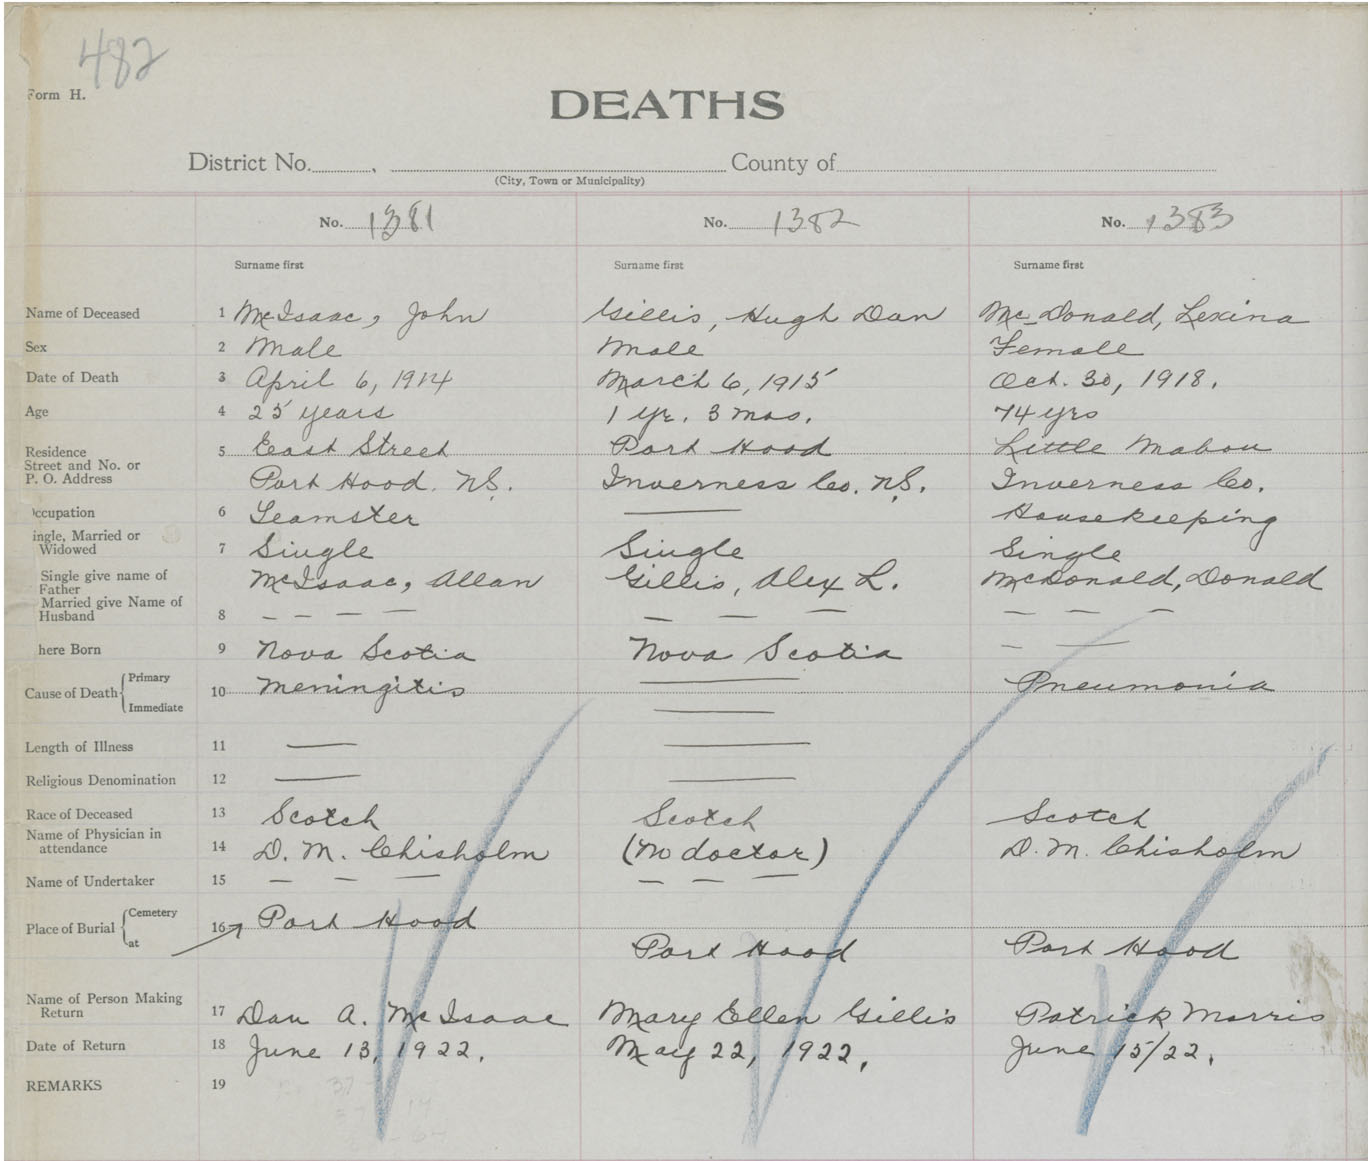 482
Form H.
DEATHS
District No. , County of
(City, Town or Municipality)
No. 1381 No. 1382 No. 1383
Surname first Surname first Surname first
Name of Deceased 1 McIsaac, John Gillis, Hugh Dan McDonald, Lexina
Sex 2 Male Male Female
Date of Death 3 April 6, 1914 March 6, 1915 Oct. 30, 1918.
Age 4 25 years 1 yr. 3 mos. 74 yrs
Residence 5 East Street Port Hood Little Mabou
Street and No. or
P. O. Address Port Hood. N.S. Inverness Co. N.S. Inverness Co.
ccupation 6 Teamster Housekeeping
ingle, Married or
Widowed 7 Single Single Single
Single give name of
Father McIsaac, Allan Gillis, Alex L. McDonald, Donald
Married give Name of
Husband 8 — — — — — — — — — —
here Born 9 Nova Scotia Nova Scotia — —
Cause of Death { Primary
10 Meningitis Pneumonia
Immediate
Length of Illness 11
Religious Denomination 12
Race of Deceased 13 Scotch Scotch Scotch
Name of Physician in
attendance 14 D. M. Chisholm (No doctor) D. M. Chisholm
Name of Undertaker 15 — — — — — —
Place of Burial { Cemetery
16 Port Hood
at Port Hood Port Hood
Name of Person Making
Return 17 Dan A. McIsaac Mary Ellen Gillis Patrick Morris
Date of Return 18 June 13, 1922. May 22, 1922. June 15/22.
REMARKS 19